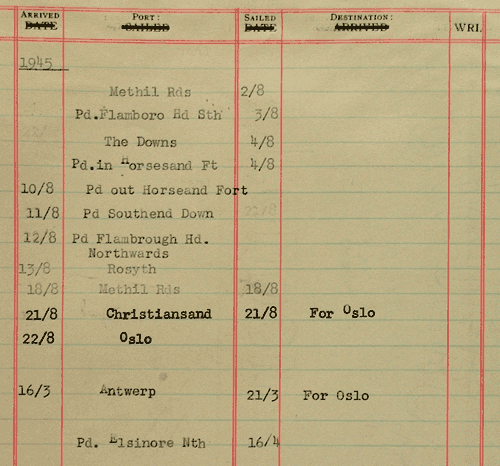 ARRIVED PORT: SAILED DESTINATION:
DATE SAILED DATE ARRIVED WRI
1945
Methil Rds 2/8
Pd.Flamboro Hd Sth 3/8
The Downs 4/8
Pd.in Horsesand Ft 4/8
10/8 Pd out Horseand Fort
11/8 Pd Southend Down
12/8 Pd Flambrough Hd.
Northwards
13/8 Rosyth
18/8 Methil Rds 18/8
21/8 Christiansand 21/8 For Oslo
22/8 Oslo
16/3 Antwerp 21/3 For Oslo
Pd. Elsinore Nth 16/4